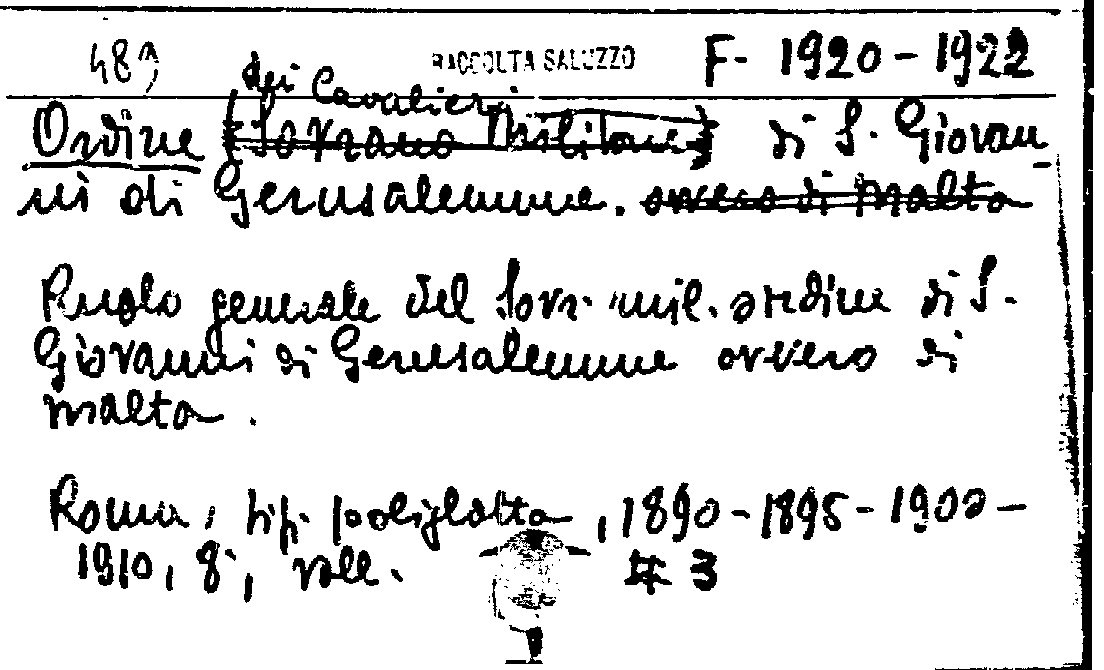 489 RACCOLTA SALUZZO F- 1920-1922
dei Cavalieri
Ordine (Sovrano Militare) di S. Giovan
ni di Gerusalemme. ovvero di Malta
Ruolo generale del Sovr. mil. ordine di S.
Giovanni di Gerusalemme ovvero di
Malta.
Roma, tip. poliglotta, 1890-1895-1900-
1910, 8°, voll. 3